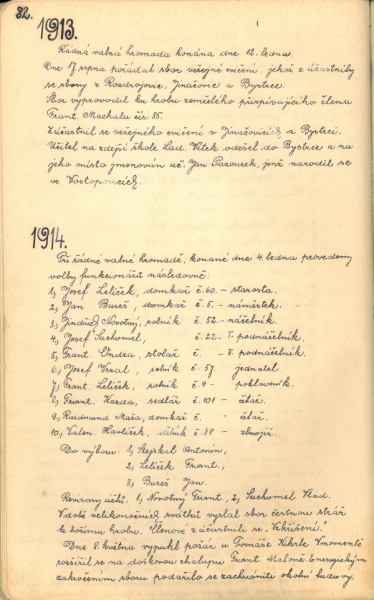 82.
1913.
Řádná valná hromada konána dne 12. ledna.
Dne 17. srpna pořádal sbor veřejné cvičení, jehož se účastnily
se sbory z Rozdrojovic, Jinačovic a Bystrce.
Sbor vyprovodil ku hrobu zemřelého přispívajícího člena
Frant. Machala čís. 35.
Zúčastnil se veřejného cvičení v Jinačovicích a Bystrci.
Učitel na zdejší škole Lad. Vítek odešel do Bystrce a na
jeho místo jmenován uč. Jan Pazourek, jenž narodil se
ve Vostopovicích.
1914.
Při řádné valné hromadě, konané dne 4. ledna provedeny
volby funkcionářů následovně:
1, Josef Lelíček, domkář č. 60. – starosta.
2, Jan Bureš, domkář č. 5. – náměstek.
3, Jindřich Novotný, rolník č. 52. – náčelník.
4, Josef Suchomel, č. 22 – I. podnáčelník.
5, Frant. Ondra, stolář č. – II. podnáčelník.
6, Josef Vrzal, rolník č. 57. jednatel
7, Frant. Lelíček, rolník č. 9 – pokladník.
8, Frant. Karda, sedlář č. 101 – četař.
9, Raidmund Máša, domkář č. – četař.
10, Valen. Havlíček, dělník č. 88 – zbrojíř.
Do výboru: 1, Stejskal Antonín,
2, Lelíček Frant.,
3, Bureš Jan.
Revisory účtů: 1, Novotný Frant, 2, Suchomel Vlad.
V době velikonočních svátků vyslal sbor čestnou stráž
k božímu hrobu. Členové zúčastnili se „Vzkříšení.“
Dne 8. května vypukl požár u Tomáše
rozšířil se na doškovou chalupu Frant. Energickým
zakročením sboru podařilo se zachrániti okolní budovy.